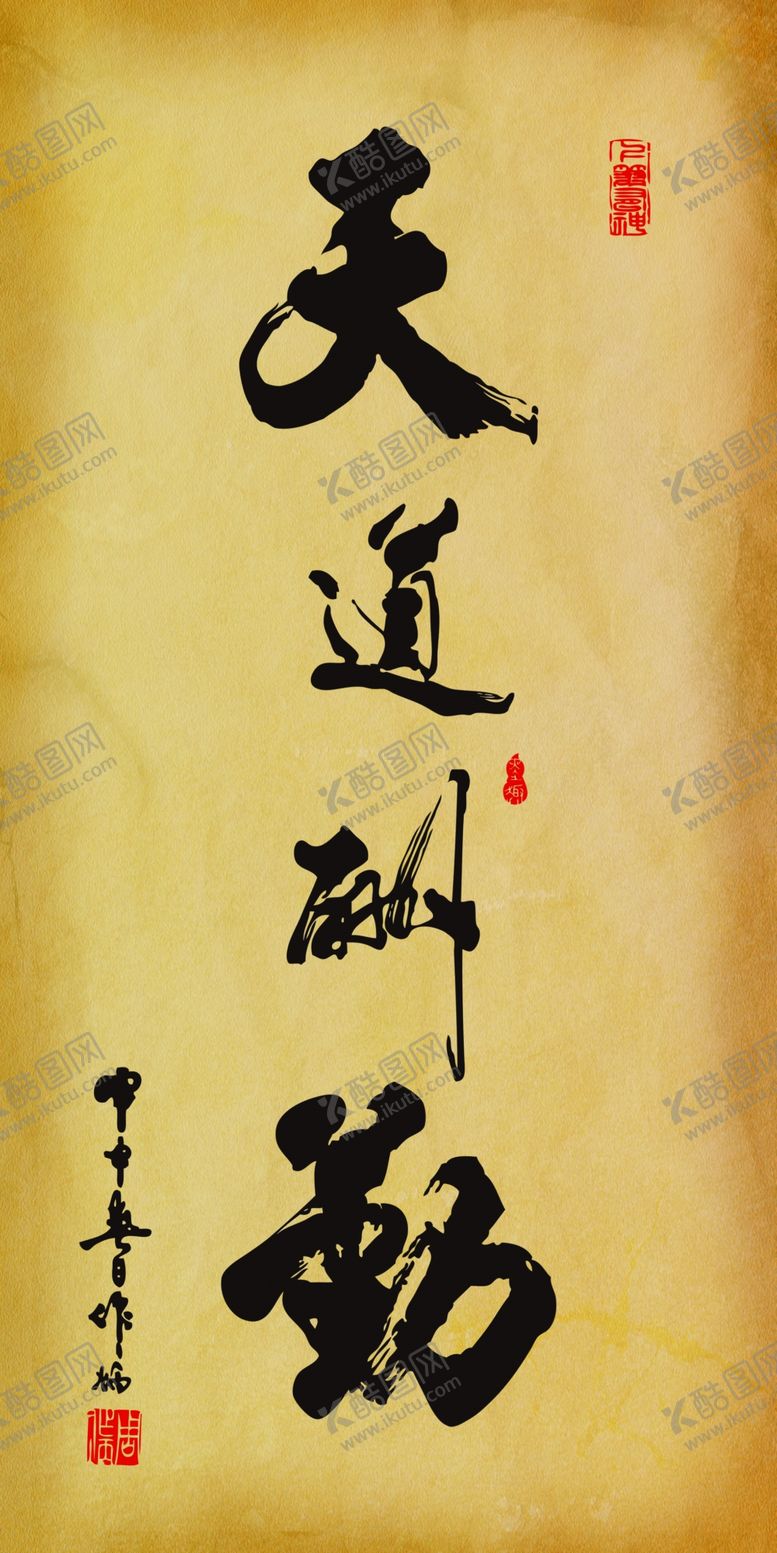 天道酬勤
甲申春日作
酷图网
www.ikutu.com